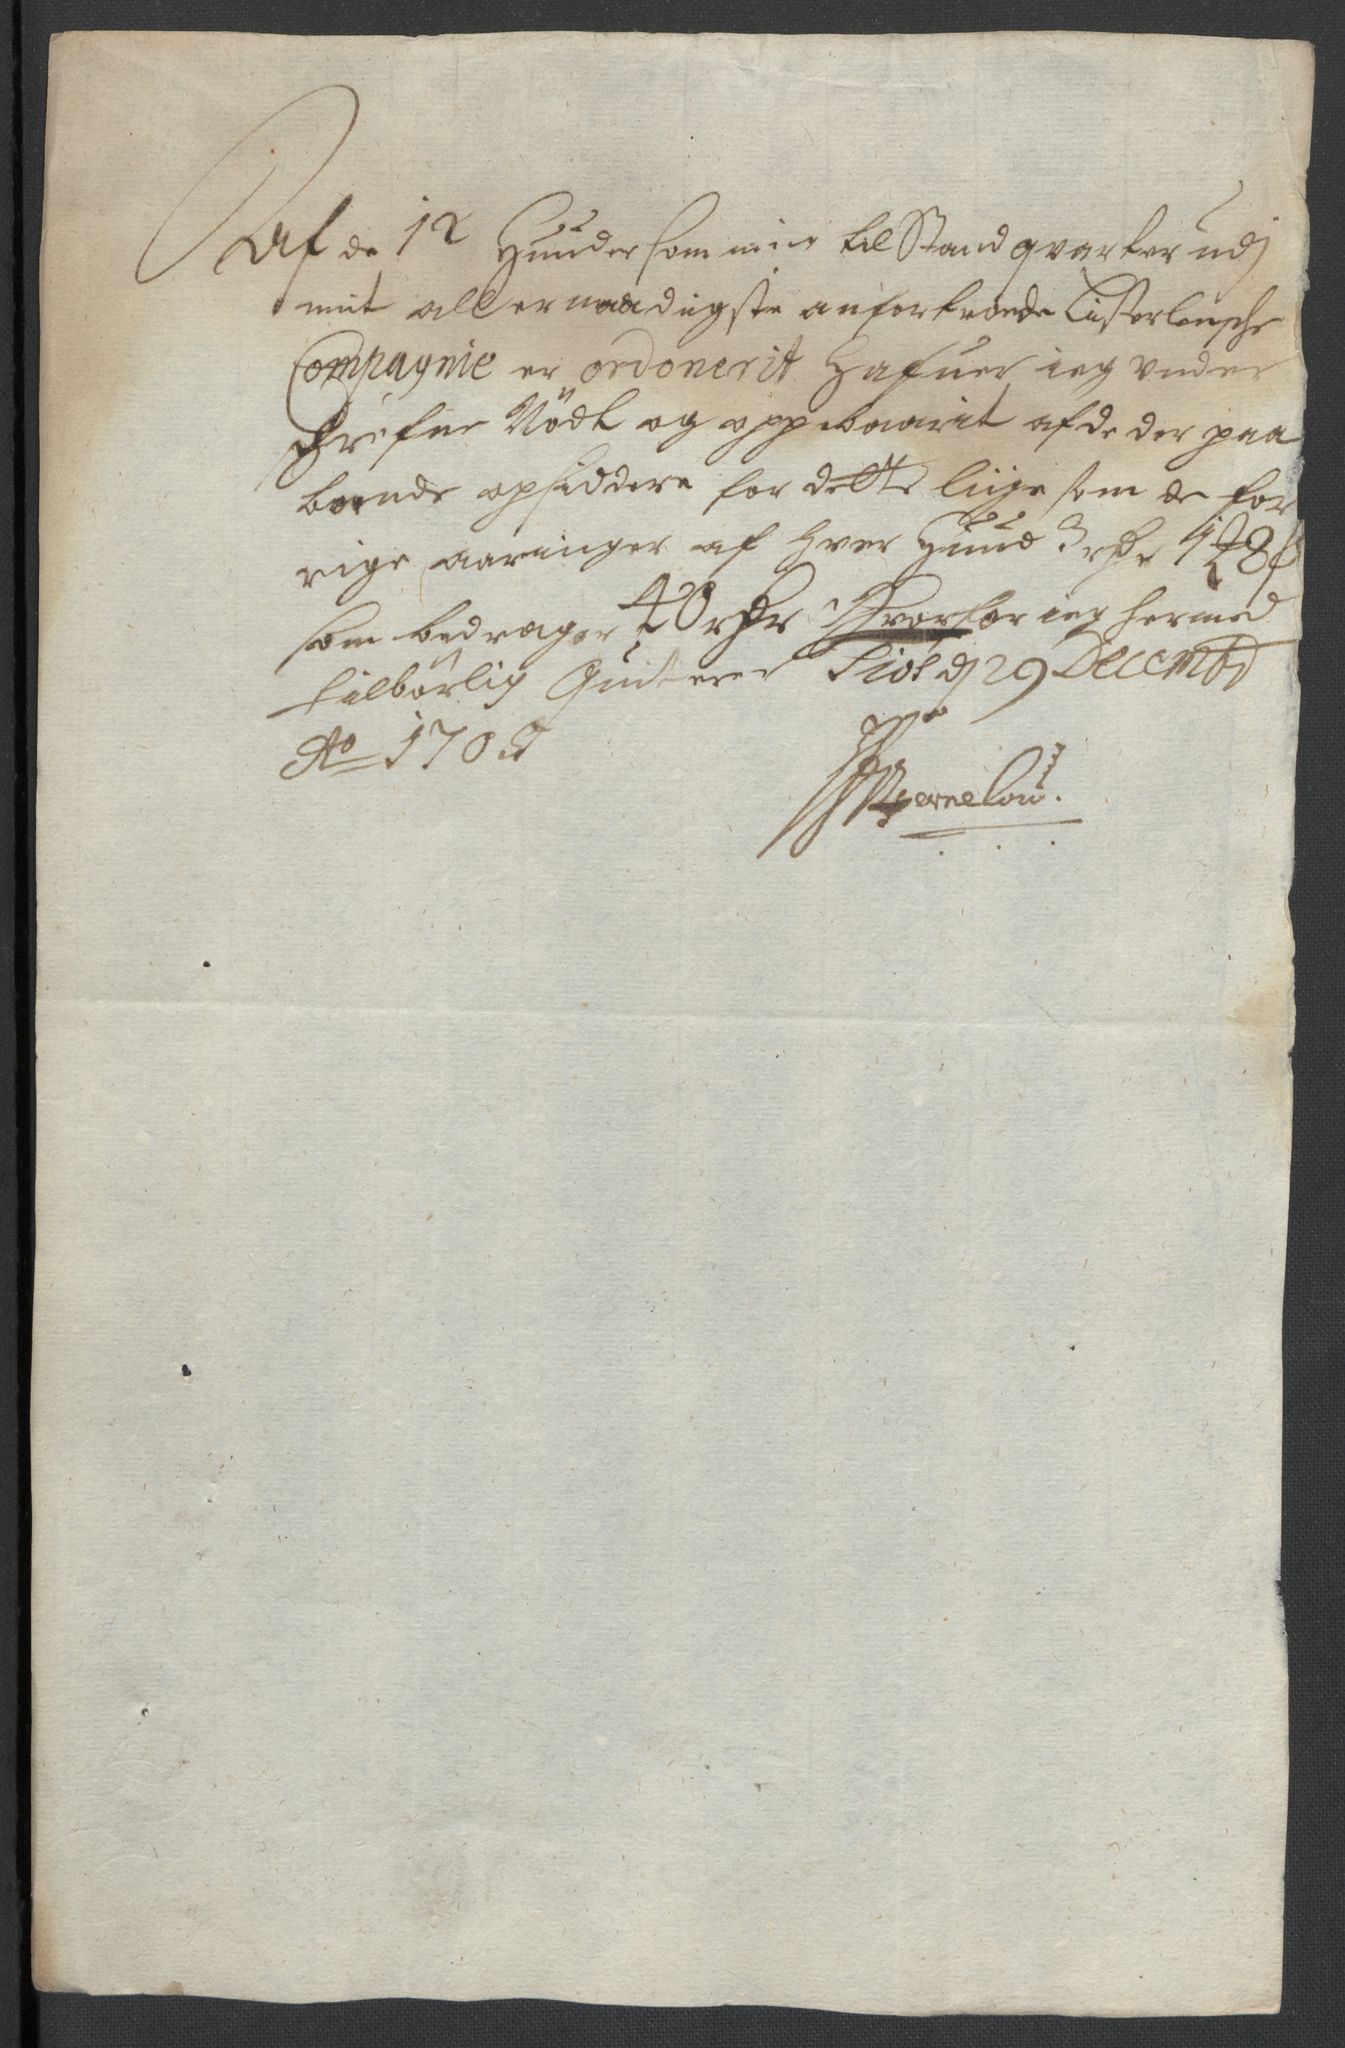 Af de 12 Huuder som mig til Stand qvarter udj
mit allernaadigste anfortroede Listerlensche
Compagnie er ordonerit Hafuer ieg under
schrefne Nödt og oppebaarit af de der paa
boende opsiddere for dette liige som de for
rige aaringer af hver Huud 3 rdr
som bedrager 40 rdr Hvorfor ieg hermed
tilbörlig Quiterer d 29 Decembr
Ao 170